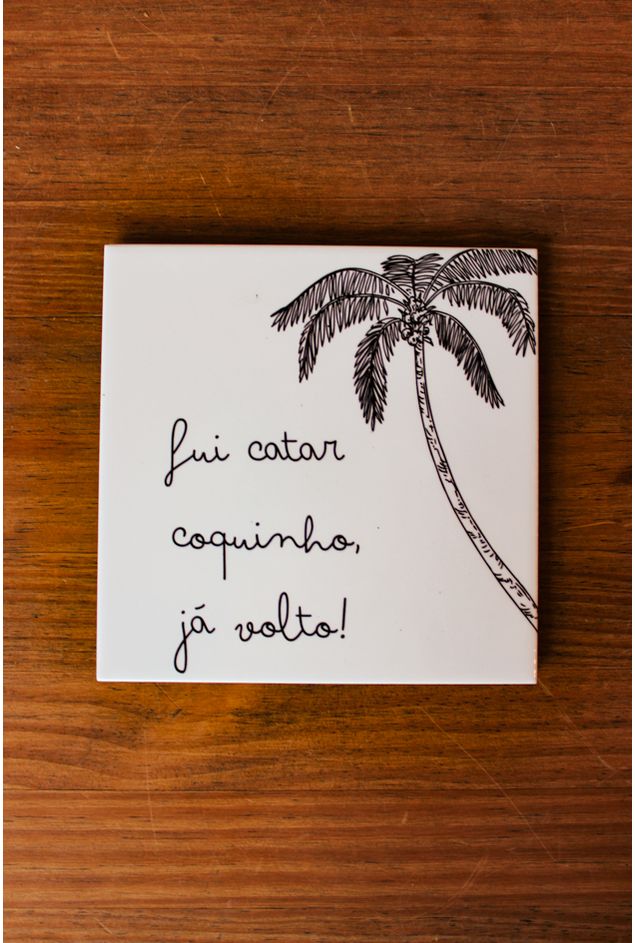 fui catar
coquinho,
já volto!